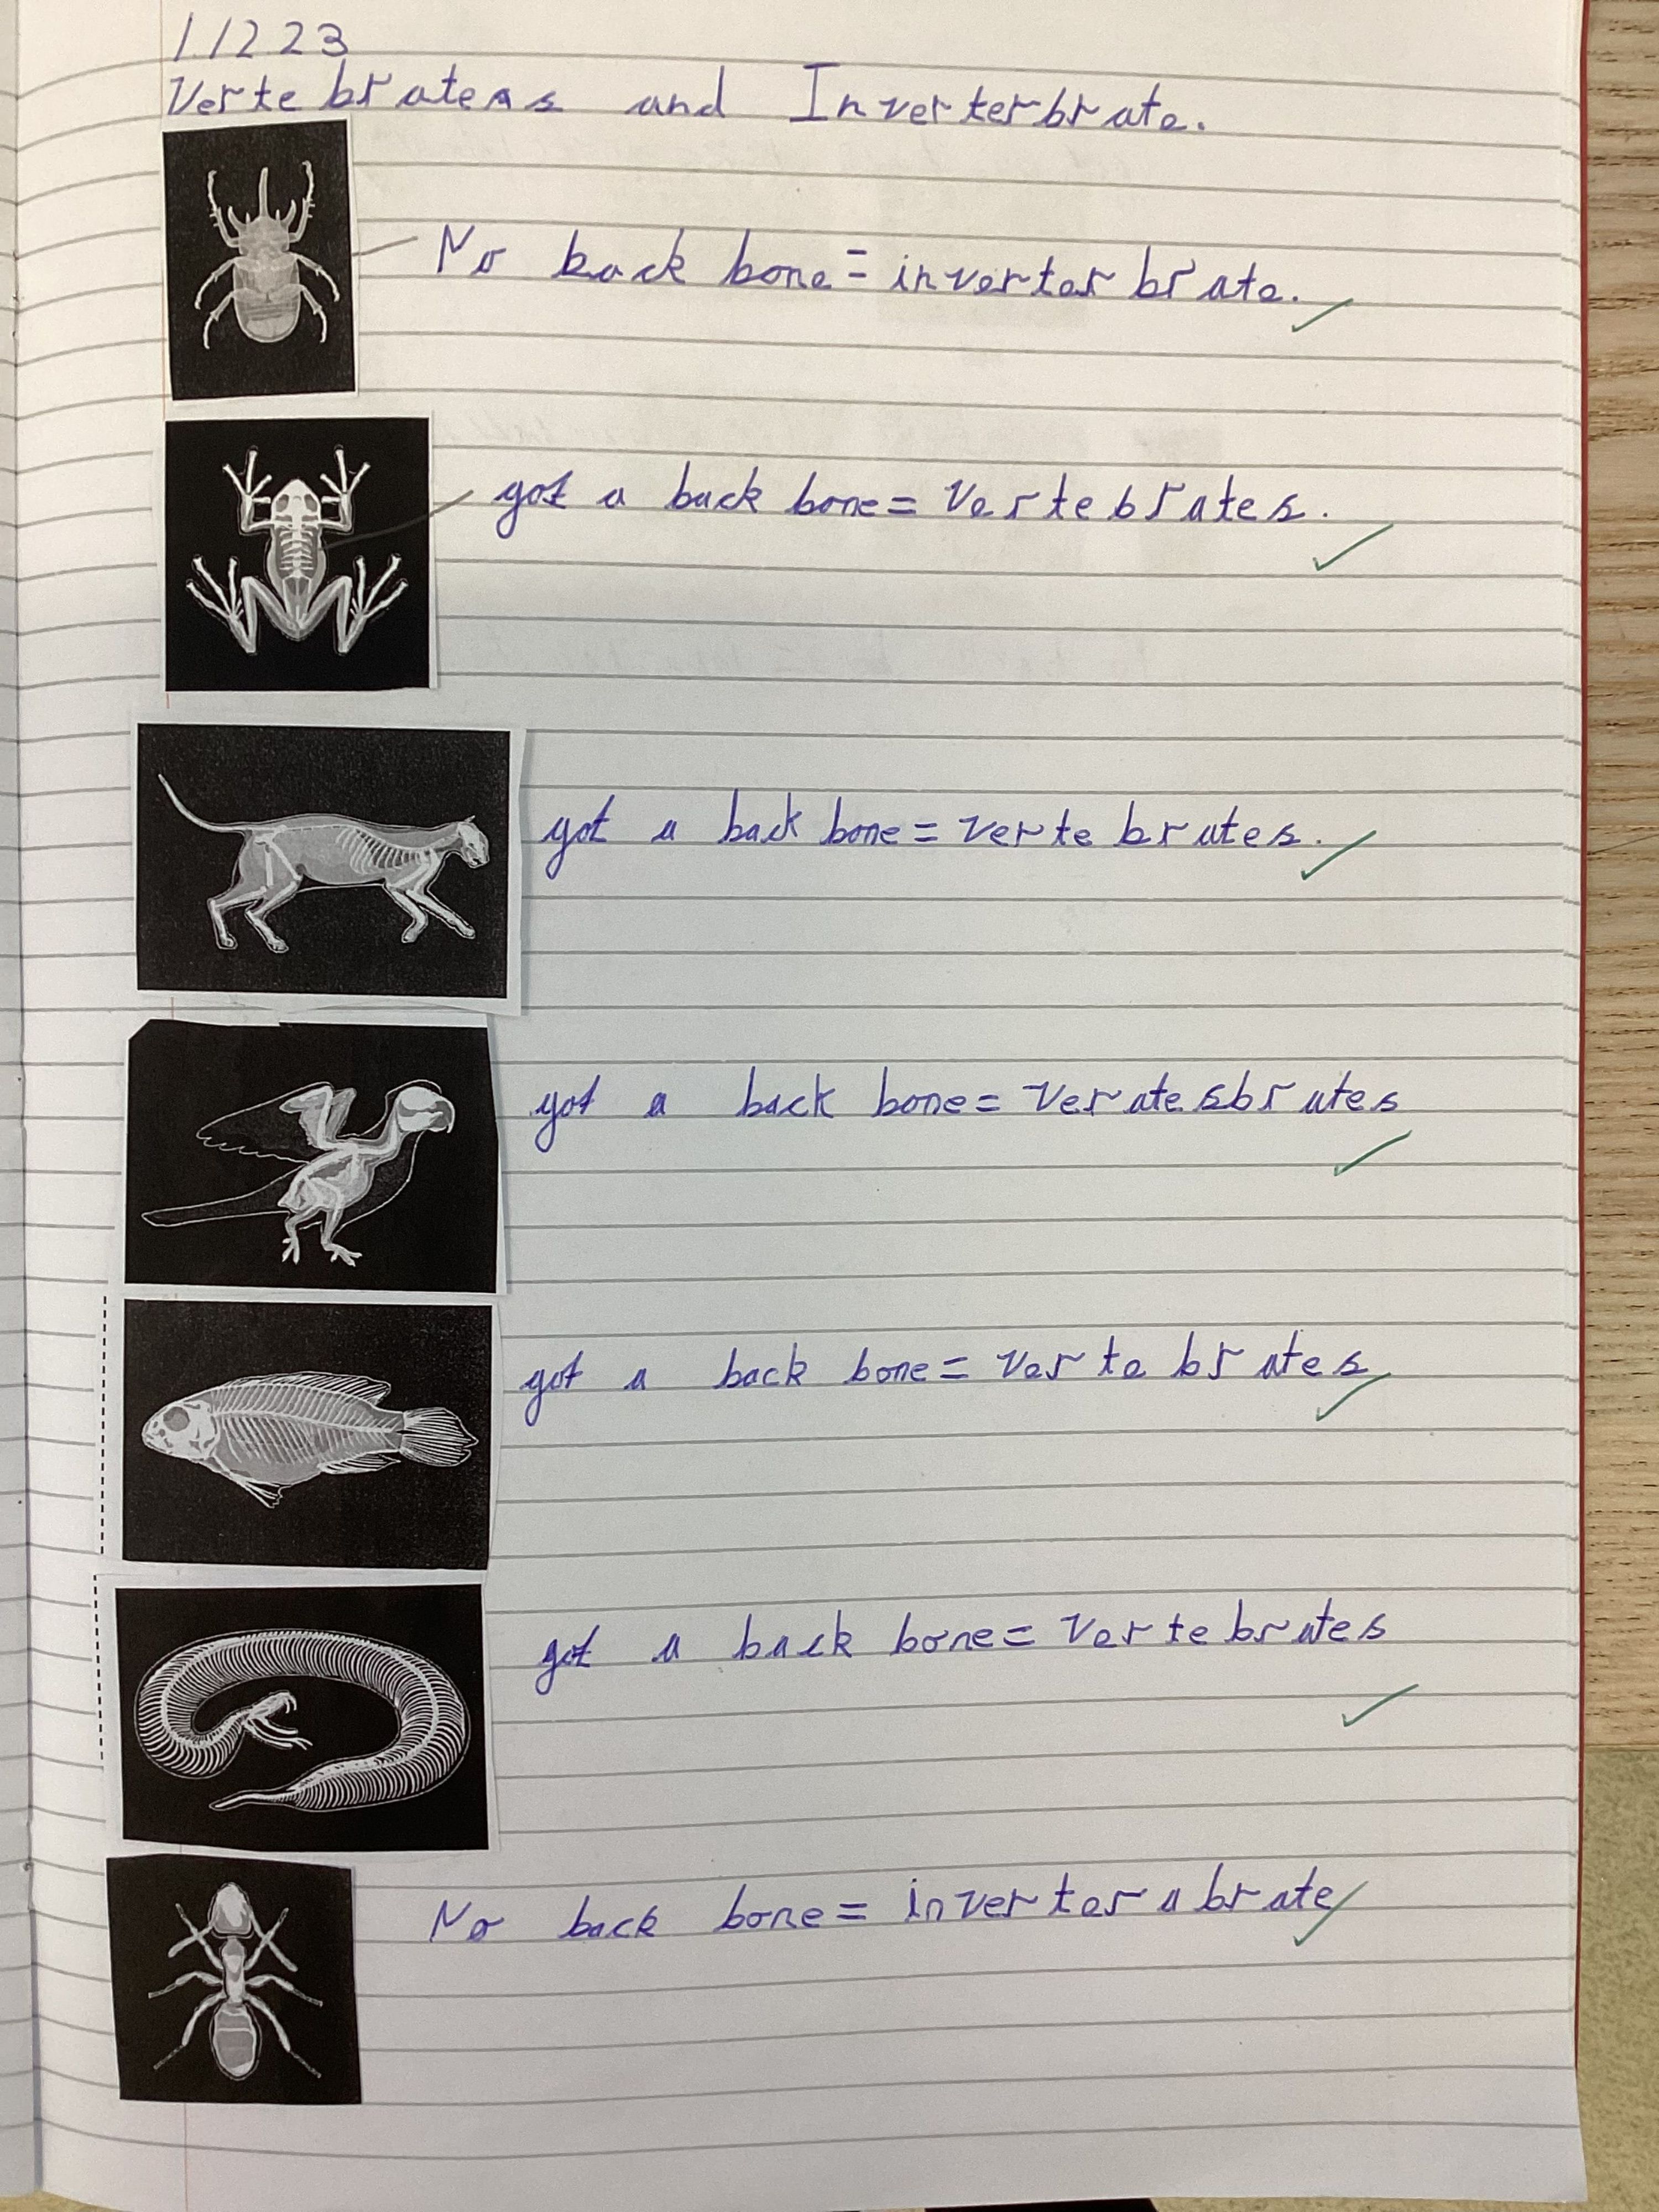 1.12.23
Vertebrateas and Inverterbrate.
No back bone = inverterbrate.
got a back bone = Vertebrates.
got a back bone = vertebrates.
got a back bone = veratesbrates
got a back bone = vertebrates
got a back bone = vertebrates
No back bone = inverterabrate